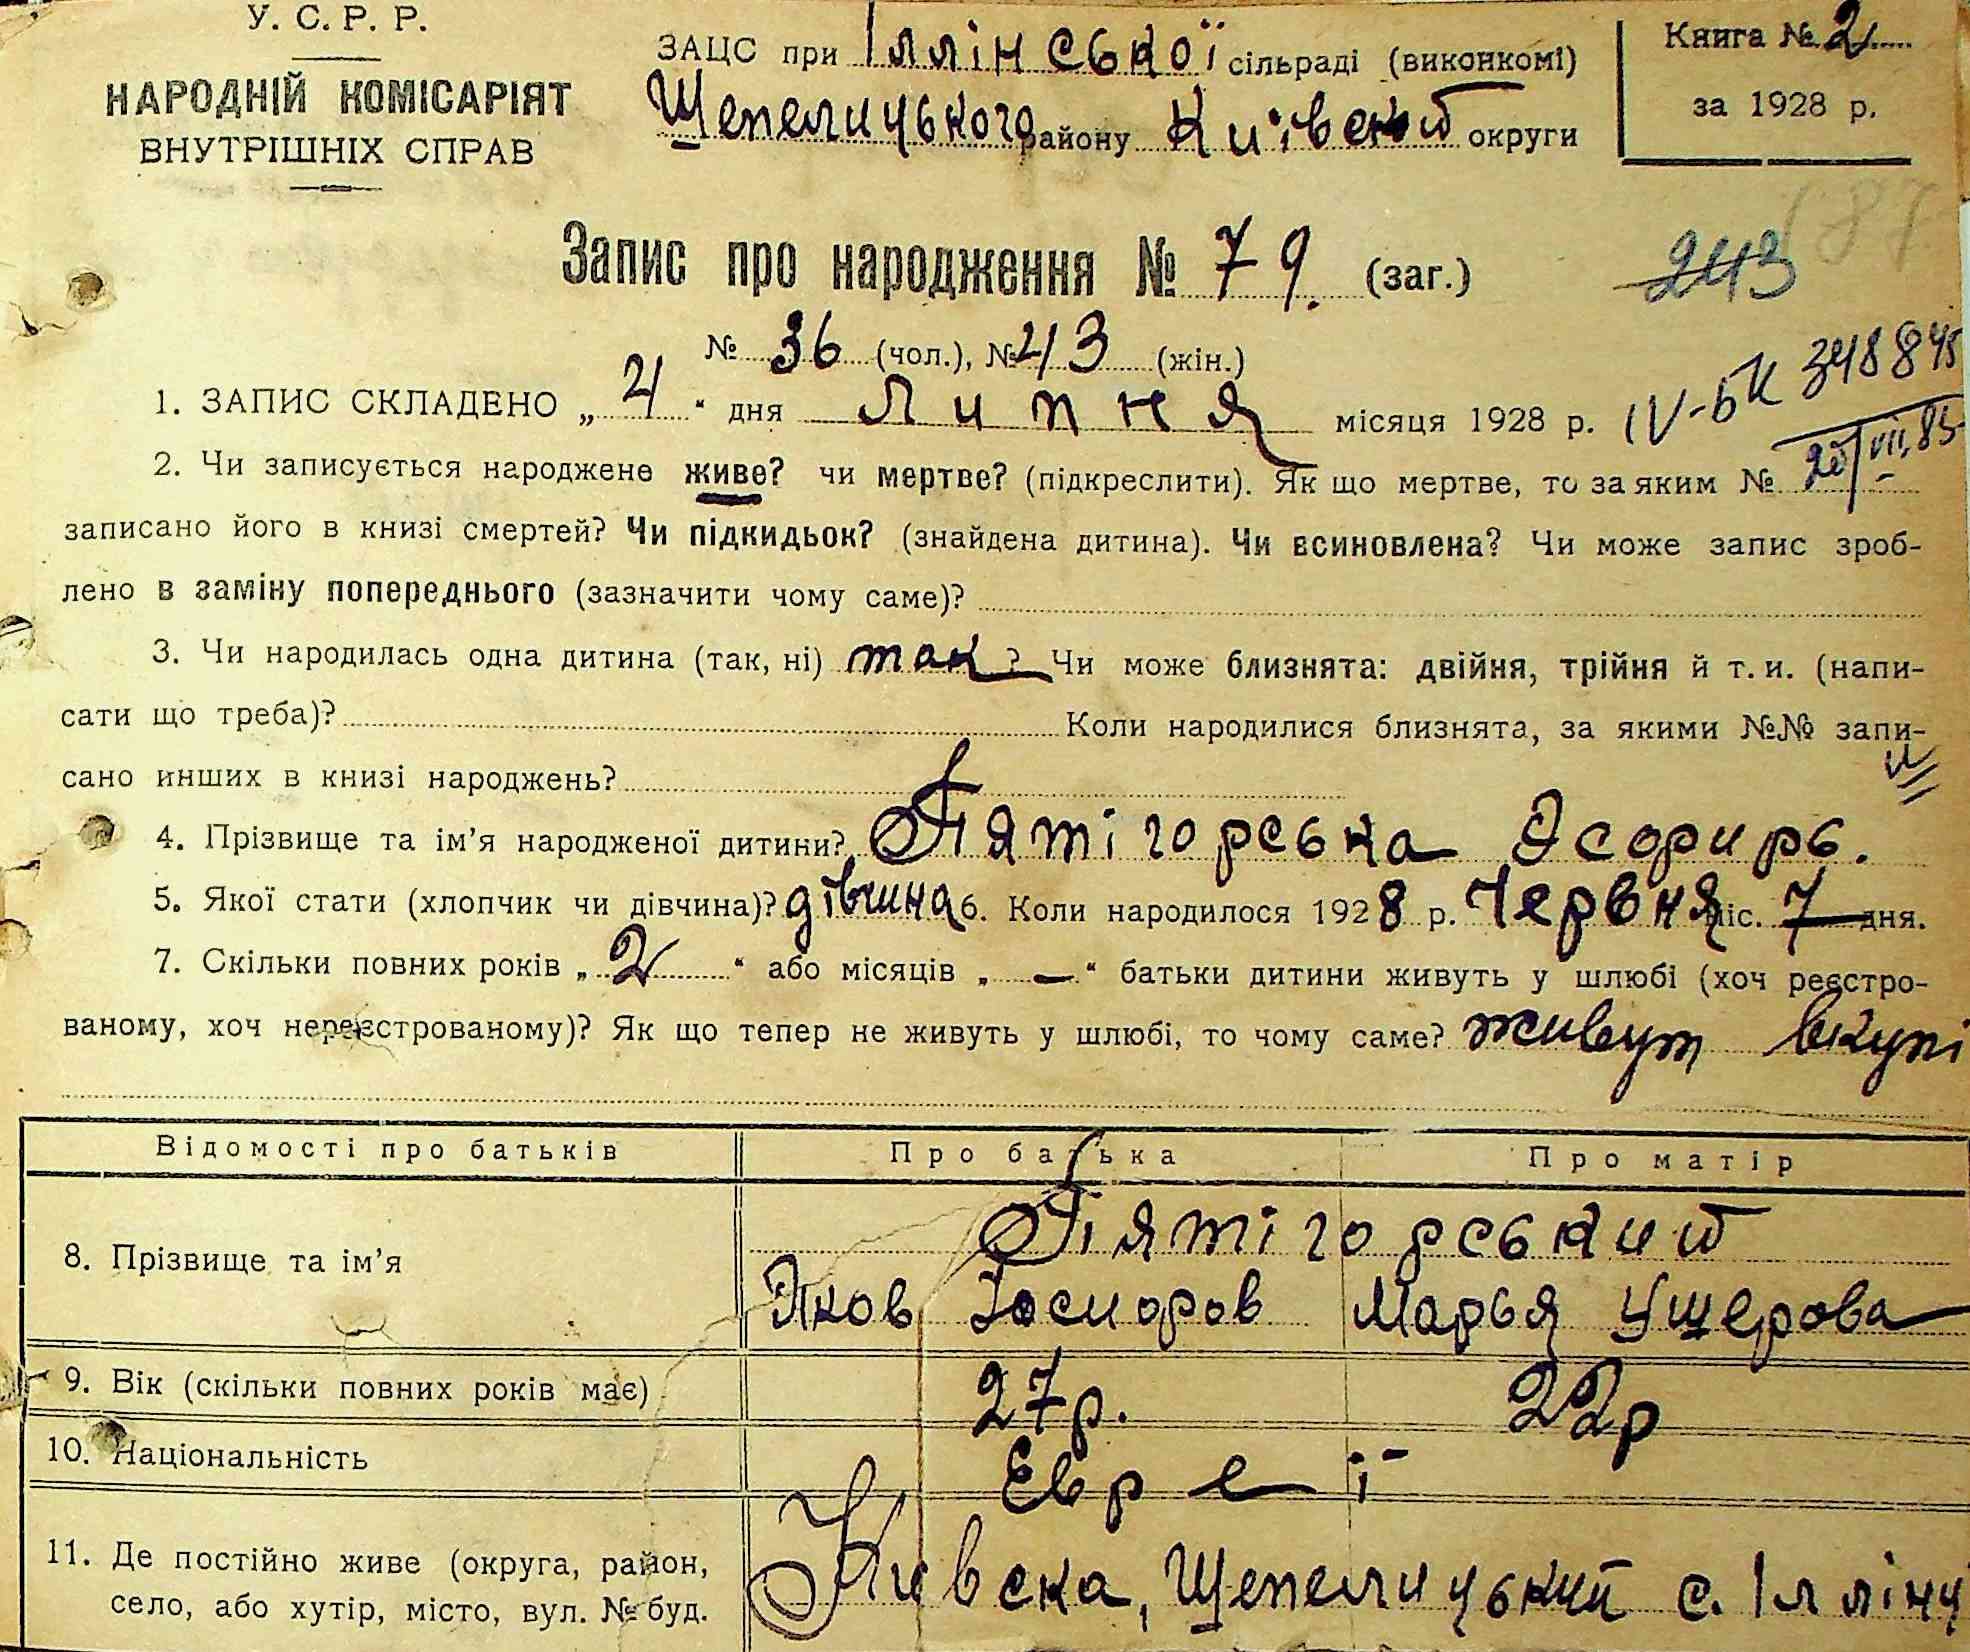 У. С. Р. Р.
НАРОДНІЙ КОМІСАРІЯТ
ВНУТРІШНІХ СПРАВ
ЗАЦС при Іллінської сільраді (виконкомі)
Шепелицького району Київский округи
Книга № 2
за 1928 р.
Запис про народження № 79. (заг.)
243
187
№ 36 (чол.), № 43 (жін.)
1. ЗАПИС СКЛАДЕНО „ 4 “ дня Липня місяця 1928 р.
IV-БК 348845
2. Чи записується народжене живе? чи мертве? (підкреслити). Як що мертве, то за яким №
записано його в книзі смертей? Чи підкидьок? (знайдена дитина). Чи всиновлена? Чи може запис зроб-
лено в заміну попереднього (зазначити чому саме)?
3. Чи народилась одна дитина (так, ні) так ? Чи може близнята: двійня, трійня й т. и. (напи-
сати що треба)? Коли народилися близнята, за якими №№ запи-
сано инших в книзі народжень?
4. Прізвище та ім’я народженої дитини? Пятігорська Эсфирь.
5. Якої стати (хлопчик чи дівчина)? дівчина 6. Коли народилося 1928 р. Червня міс. 7 дня.
7. Скільки повних років „ 2 “ або місяців „ — “ батьки дитини живуть у шлюбі (хоч реєстро-
ваному, хоч нереєстрованому)? Як що тепер не живуть у шлюбі, то чому саме? живут вкупі
Відомості про батьків Про батька Про матір
8. Прізвище та ім’я Пятігорський
Яков Марья Ушерова
9. Вік (скільки повних років має) 27р. 22р
10. Національність Евреї
11. Де постійно живе (округа, район, Київска, Шепелицький с. Іллінц
село, або хутір, місто, вул. № буд.